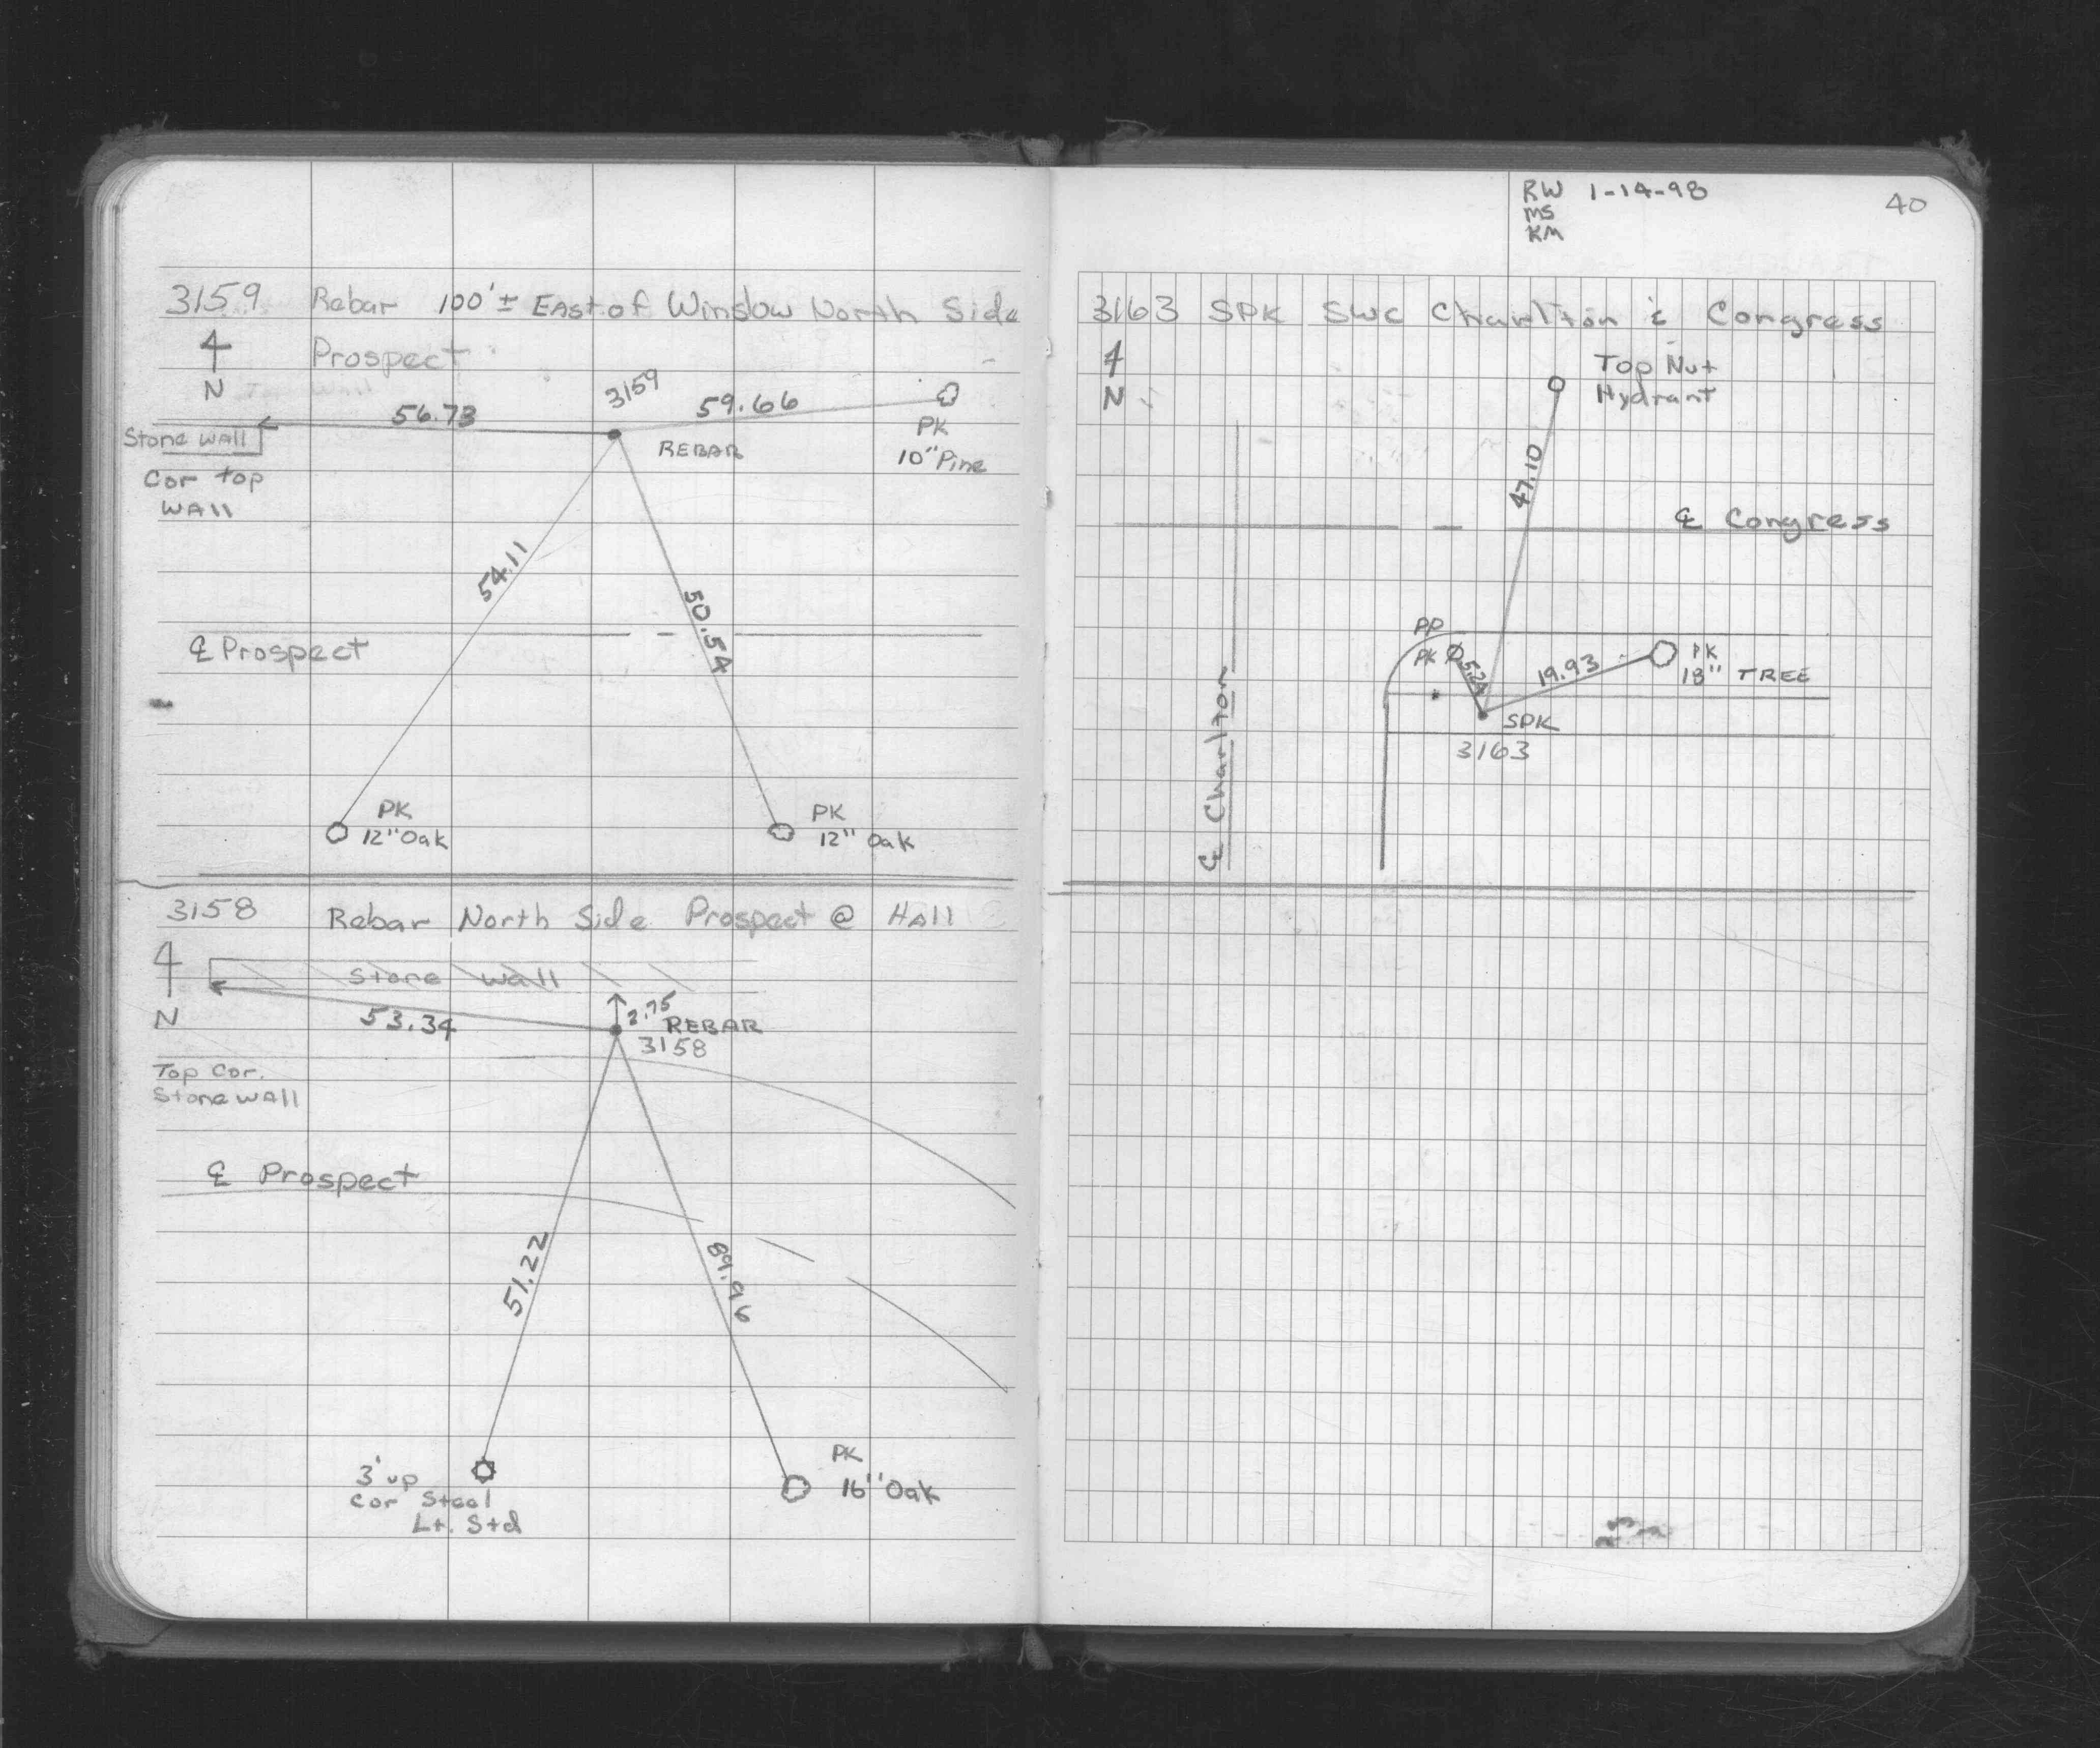 3159 Rebar 100'± East of Winslow North Side
Prospect
N
3159
56.73
59.66
Stone Wall
REBAR
PK
10" Pine
Cor top
Wall
54.11
50.54
℄ Prospect
PK
12" Oak
PK
12" Oak
3158 Rebar North Side Prospect @ Hall
Stone Wall
N
53.34
2.75
REBAR
3158
Top Cor.
Stone Wall
℄ Prospect
51.22
89.96
3' up
Cor Steel
Lt. Std
PK
16" Oak
RW 1-14-98
MS
KM
40
3163 SPK SWC Charlton & Congress
N
Top Nut
Hydrant
47.10
℄ Congress
PP
PK
5.24
19.93
PK
18" TREE
SPK
3163
℄ Charlton